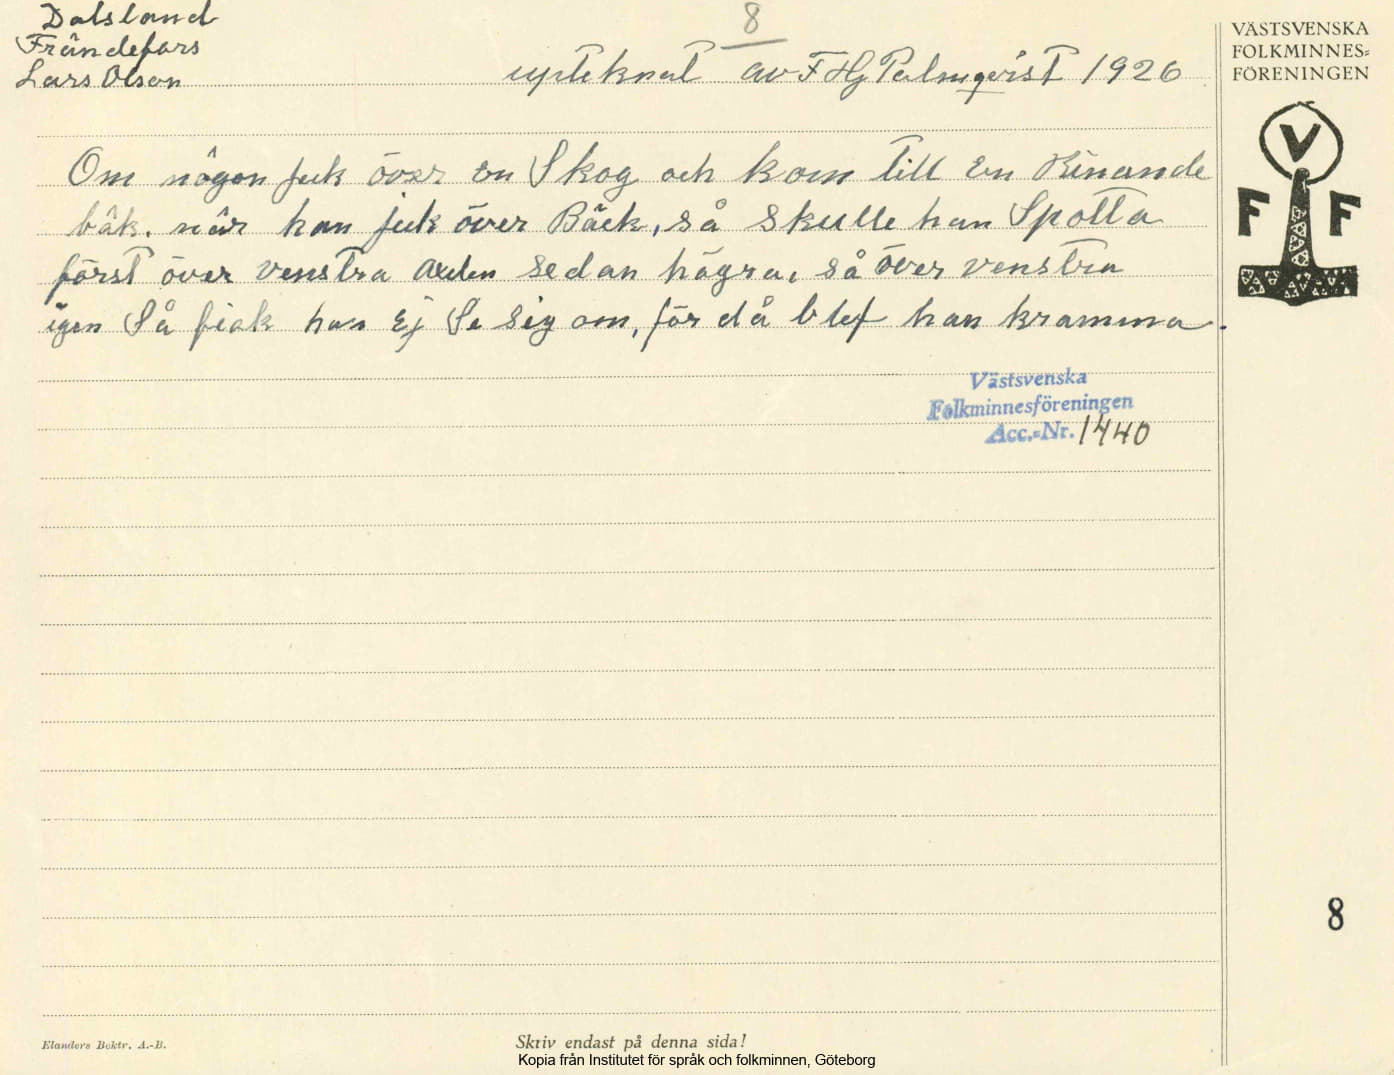 Dalsland
Frändefors
Lars Olson
8
upteknat av F Hj Palmqvist 1926
VÄSTSVENSKA
FOLKMINNES=
FÖRENINGEN
V
F F
Om någon jick över en Skog och kom till en Rinande
bäk. när han jick över Bäck, så skulle han Spotta
först över venstra axlen sedan högra, så över venstra
igen Så fick han Ej Se Sig om, för då blef han kramma.
Västsvenska
Folkminnesföreningen
Acc.=Nr. 1440
8
Elanders Boktr. A.-B.
Skriv endast på denna sida!
Kopia från Institutet för språk och folkminnen, Göteborg